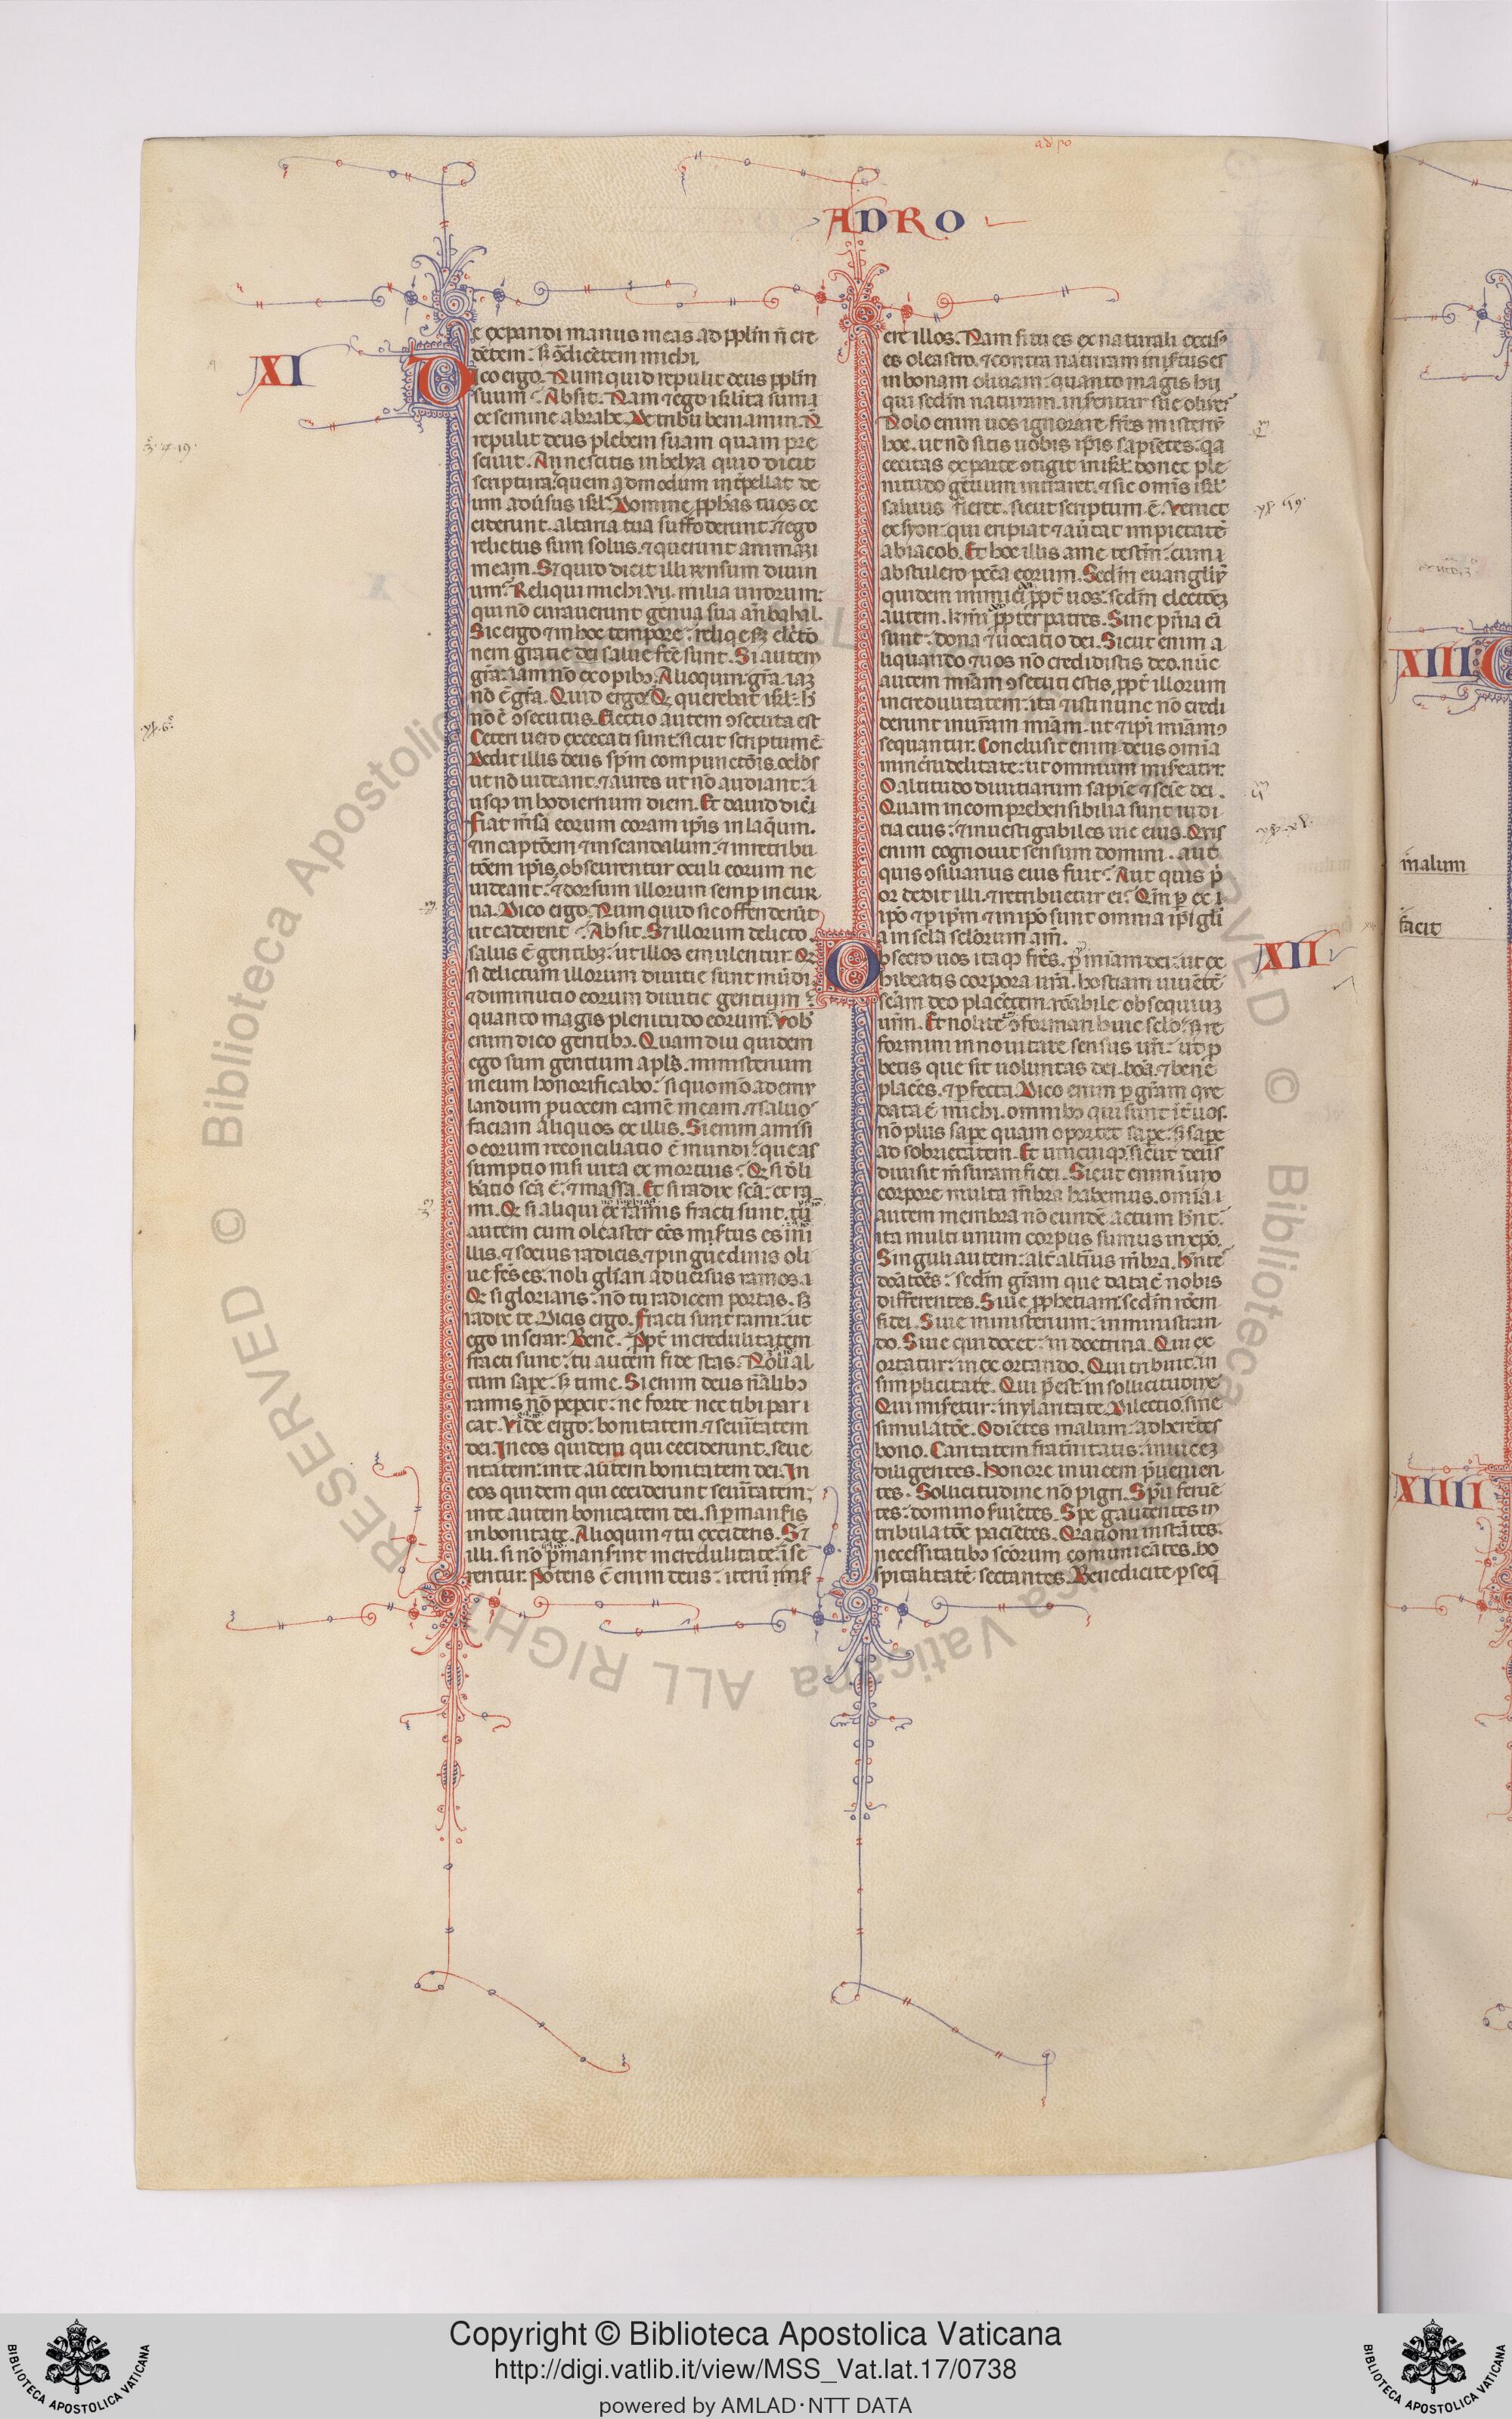 ADRO
e expandi manus meas ad pplm̄ n̄ cre
dētem: ꝫ ↄ̄dicētem michi.
XI
Dico ergo. Nunquid repulit deus pplm̄
suum? Absit. Nam et ego isrl̄ita sum
ex semine abrahe. De tribu beniamin. Nō
repulit deus plebem suam quam pre
sciuit. An nescitis in helya quid dicit
scriptura: quem admodum int̄pellat de
um aduersus isrl̄? Domine. pph̄as tuos oc
ciderunt. altaria tua suffoderunt: et ego
relictus sum solus. et querunt animam
meam. Sꝫ quid dicit illi responsum diuin
um? Reliqui michi .vii. milia uirorum:
qui nō curauerunt genua sua an̄ bahal.
Sic ergo et in hoc tempore: reliqe sc̄d̄m electō
nem gratie dei salue fc̄e sunt. Si autem
grā: iam nō ex opibꝫ. Alioquin grā iaꝫ
nō ē grā. Quid ergo? Qꝫ querebat isrl̄: h̄
nō ē ↄsecutus. Electio autem ↄsecuta est
Ceteri uero excecati sunt: sicut scriptum ē.
Dedit illis deus sp̄m compunctōis. oclōs
ut nō uideant. et aures ut nō audiant:
usqꝫ in hodiernum diem. Et dauid dicit
Fiat mēsa eorum coram ip̄is in laq̄um.
et in captōem et in scandalum: et in retribu
tōem ip̄is. obscurentur oculi eorum ne
uideant: et dorsum illorum semp incur
ua. Dico ergo. Nunquid sic offenderūt
ut caderent? Absit. Sꝫ illorum delicto
salus ē gentibꝫ: ut illos emulentur. Qꝫ
si delictum illorum diuitie sunt mūdi
et diminutio eorum diuitie gentium:
quanto magis plenitudo eorum? Vob̄
enim dico gentibꝫ. Quam diu quidem
ego sum gentium apl̄s. ministerium
meum honorificabo: si quo mō ad emu
landum puocem carnē meam. et saluo
faciam aliquos ex illis. Si enim amissi
o eorum reconciliatio ē mundi: que as
sumptio nisi uita ex mortuis? Qꝫ si deli
batio sc̄a ē: et massa. Et si radix sc̄a: et ra
mi. Qꝫ si aliqui ex ramis fracti sunt. tu
autem cum oleaster eēs insertus es in i
llis. et socius radicis. et pinguedinis oli
ue fc̄s es: noli gl̄iari aduersus ramos.
Qꝫ si gloriaris: nō tu radicem portas. sꝫ
radix te. Dicis ergo. Fracti sunt rami: ut
ego inserar. Bene. Ppt̄ incredulitatem
fracti sunt: tu autem fide stas. Noli al
tum sape. sꝫ time. Si enim deus nālibꝫ
ramis nō pepcit: ne forte nec tibi par
cat. Vide ergo: bonitatem. et seuītatem
dei. In eos quidem qui ceciderunt. seue
ritatem: in te autem bonitatem dei. In
eos quidem qui ceciderunt seuītatem:
in te autem bonitatem dei. si pmansis
in bonitate. Alioquin et tu excideris. Sꝫ et
illi. si nō pmansint incredulitate īse
rentur. Potens ē enim deus: iterū ins
ere illos. Nam si tu es ex naturali excis
es oleastro. et contra naturam insertus es
in bonam oliuam: quanto magis hii
qui sc̄dm naturam inserentur sue oliue?
Nolo enim uos ignorare fr̄es misteriū
hoc. ut nō sitis uobis ip̄is sapiētes: qa
cecitas ex parte ↄtigit in isrl̄: donec ple
nitudo gētium intraret. et sic omīs isrl̄
saluus fieret. sicut scriptum ē. Veniet
ex syon: qui eripiat et aūtat impietatē
a iacob. Et hoc illis a me testm̄: cum
abstulero pcc̄a eorum. Sc̄dm euangliū
quidem inimici ppt̄ uos: sc̄dm electōeꝫ
autem. kmī ppter patres. Sine pn̄ia eī
sunt: dona et uocatio dei. Sicut enim a
liquando et uos nō credidistis deo. nūc
autem mīam ↄsecuti estis. ppt̄ illorum
incredulitatem: ita et isti nunc nō credi
derunt in ur̄am mīam. ut et ip̄i mīam ↄ
sequantur. Conclusit enim deus omīa
in incredulitate: ut omnium misereatr.
O altitudo diuitiarum sapie et scie dei.
Quam incomprehensibilia sunt iudi
cia eius: et inuestigabiles uie eius. Quis
enim cognouit sensum domini. aut
quis ↄsiliarius eius fuit? Aut quis p̄
or dedit illi. et retribuetur ei? Qm̄ ex
ip̄o et p ip̄m et in ip̄o sunt omnia ip̄i gl̄i
a in scl̄a scl̄orum am̄.
XII
Obsecro uos itaqꝫ fr̄es. p mīam dei: ut ex
hibeatis corpora ur̄a. hostiam uiuētē
sc̄am deo placētem. rōabile obsequiuꝫ
ur̄m. Et nolite ↄformari huic sclo: sꝫ re
formini in nouitate sensus ur̄i: ut p
betis que sit uoluntas dei. bōa. et bene
placēs. et pfecta. Dico enim p grām que
data ē michi. omnibꝫ qui sunt īt̄ uos.
nō plus sape quam oportet sape: sꝫ sape
ad sobrietatem. Et unicuiqꝫ. sicut deus
diuisit mēsuram fidei. Sicut enim ī uno
corpore multa mēbra habemus. omīa
autem membra nō eundē actum hn̄t:
ita multi unum corpus sumus in xp̄o.
Singuli autem: alt̄ alt̄ius mēbra. hn̄te
donatōēs: sc̄dm grām que data ē nobis
differentes. Siue pphetiam: sc̄dm rōem
fidei. Siue ministerium: in ministran
do. Siue qui docet: in doctrina. Qui ex
ortatur: in exortando. Qui tribuit: in
simplicitate. Qui p̄est: in sollicitudine
Qui miseretur: in ylaritate. Dilectio. sine
simulatōe. Odiētes malum: adherētes
bono. Caritatem fratn̄itatis: inuiceꝫ
diligentes. Honore inuicem p̄uenien
tes. Sollicitudine nō pigri. Sp̄u feruē
tes: domino seruiētes. Spe gaudentes in
tribulatōe paciētes. Orationi instātes.
necessitatibꝫ sc̄orum comunicātes. ho
spitalitatē sectantes. Benedicite pseq̄
malum
facit
XIII
XIIII
Copyright © Biblioteca Apostolica Vaticana
http://digi.vatlib.it/view/MSS_Vat.lat.17/0738
powered by AMLAD · NTT DATA
BIBLIOTECA APOSTOLICA VATICANA
BIBLIOTECA APOSTOLICA VATICANA